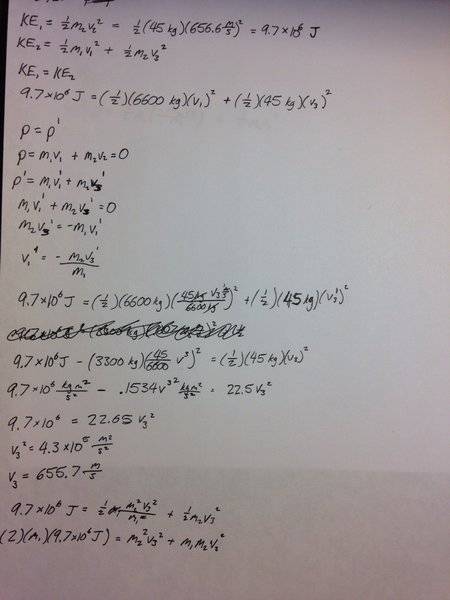 KE₁ = ½m₂v₂² = ½(45 kg)(656.6 m/s)² = 9.7×10⁶ J
KE₂ = ½m₁v₁² + ½m₂v₃²
KE₁ = KE₂
9.7×10⁶ J = (½)(6600 kg)(v₁)² + (½)(45 kg)(v₃)²
p = p'
p = m₁v₁ + m₂v₂ = 0
p' = m₁v₁' + m₂v₃'
m₁v₁' + m₂v₃' = 0
m₂v₃' = -m₁v₁'
v₁' = - m₂v₃'/m₁
9.7×10⁶ J = (½)(6600 kg)(45 kg v₃'/6600 kg)² + (½)(45 kg)(v₃')²
9.7×10⁶ J - (3300 kg)(45/6600 v³)² = (½)(45 kg)(v₃)²
9.7×10⁶ kg m²/s² - .1534v³² kg m²/s² = 22.5 v₃²
9.7×10⁶ = 22.65 v₃²
v₃² = 4.3×10⁵ m²/s²
v₃ = 655.7 m/s
9.7×10⁶ J = ½ m₂²v₃²/m₁ + ½m₂v₃²
(2)(m₁)(9.7×10⁶ J) = m₂²v₃² + m₁m₂v₃²